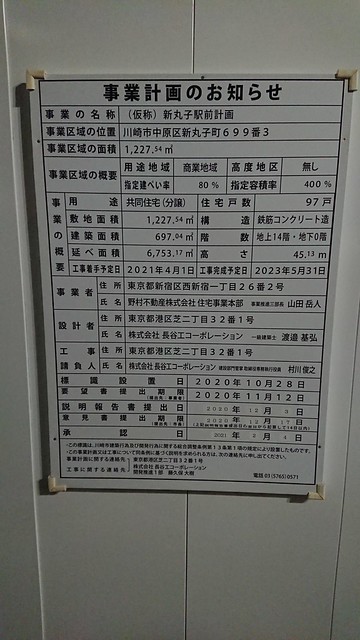 事業計画のお知らせ
事業の名称 (仮称) 新丸子駅前計画
事業区域の位置 川崎市中原区新丸子町699番3
事業区域の面積 1,227.54㎡
事業区域の概要 用途地域 商業地域 高度地区 無し
指定建ぺい率 80% 指定容積率 400%
事業の概要 用途 共同住宅(分譲) 住宅戸数 97戸
敷地面積 1,227.54㎡ 構造 鉄筋コンクリート造
建築面積 697.04㎡ 階数 地上14階・地下0階
延べ面積 6,753.17㎡ 高さ 45.13m
工事着手予定日 2021年4月1日 工事完成予定日 2023年5月31日
事業者 住所 東京都新宿区西新宿一丁目26番2号
氏名 野村不動産株式会社 住宅事業本部 事業推進三部長 山田岳人
設計者 住所 東京都港区芝二丁目32番1号
氏名 株式会社 長谷工コーポレーション 一級建築士 渡邉基弘
工事請負人 住所 東京都港区芝二丁目32番1号
氏名 株式会社長谷工コーポレーション 村川俊之
標識設置日 2020年10月28日
要望書提出期限 (提出先:事業者) 2020年11月12日
説明報告書提出日 2020年12月3日
意見書提出期限 (提出先:市長) 2020年12月17日
承認日 2021年2月4日
・この標識は、川崎市建築行為及び開発行為に関する総合調整条例第13条第1項の規定により設置したものです。
・この事業計画又は工事について同条例に基づく説明を求められる方は、次の連絡先に申し出てください。
事業計画に関する連絡先 東京都港区芝二丁目32番1号
株式会社 長谷工コーポレーション
工事に関する連絡先 開発推進1部 藤久保大樹 電話 03(5765)0571